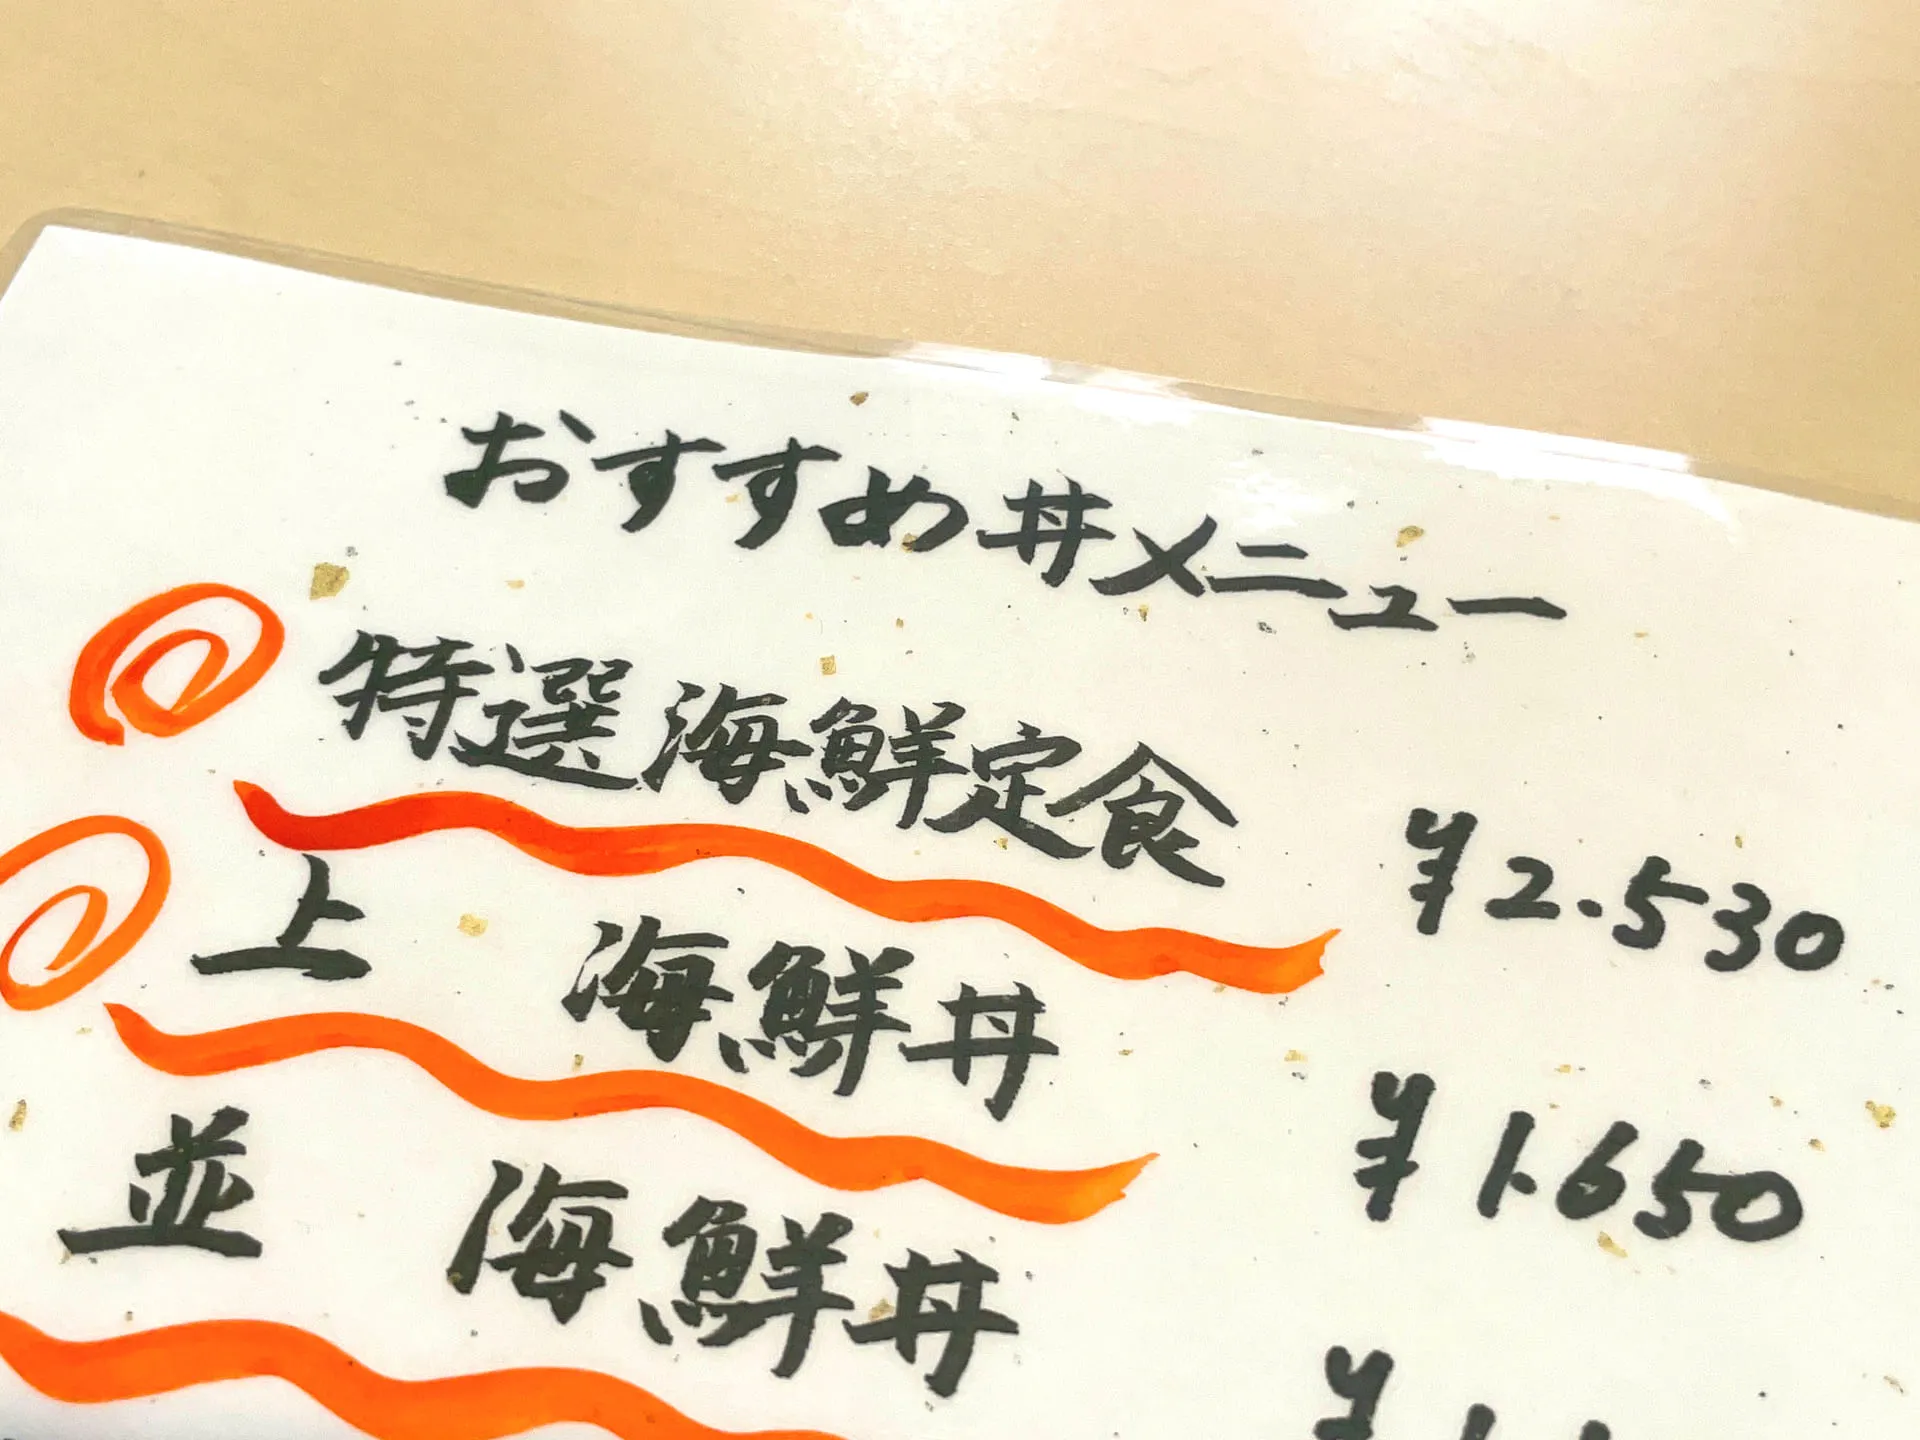 おすすめ丼メニュー
特選海鮮定食 ¥2.530
上 海鮮丼 ¥1.650
並 海鮮丼 ¥1